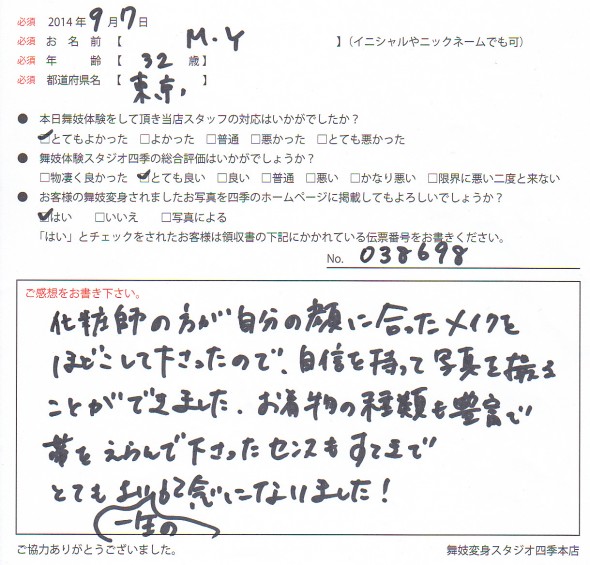 必須 2014年9月7日
必須 お名前【 M.Y 】(イニシャルやニックネームでも可)
必須 年齢【 32 歳】
必須 都道府県名【 東京 】
● 本日舞妓体験をして頂き当店スタッフの対応はいかがでしたか?
☑とてもよかった □よかった □普通 □悪かった □とても悪かった
● 舞妓体験スタジオ四季の総合評価はいかがでしょうか?
□物凄く良かった ☑とても良い □良い □普通 □悪い □かなり悪い □限界に悪い二度と来ない
● お客様の舞妓変身されましたお写真を四季のホームページに掲載してもよろしいでしょうか?
☑はい □いいえ □写真による
「はい」とチェックをされたお客様は領収書の下記にかかれている伝票番号をお書きください。
No. 038698
ご感想をお書き下さい。
化粧師の方が自分の顔に合ったメイクを
ほどこして下さったので、自信を持って写真を撮る
ことができました。お着物の種類も豊富で
帯をえらんで下さったセンスもすてきで
とても 念になりました!
一生の
ご協力ありがとうございました。
舞妓変身スタジオ四季本店